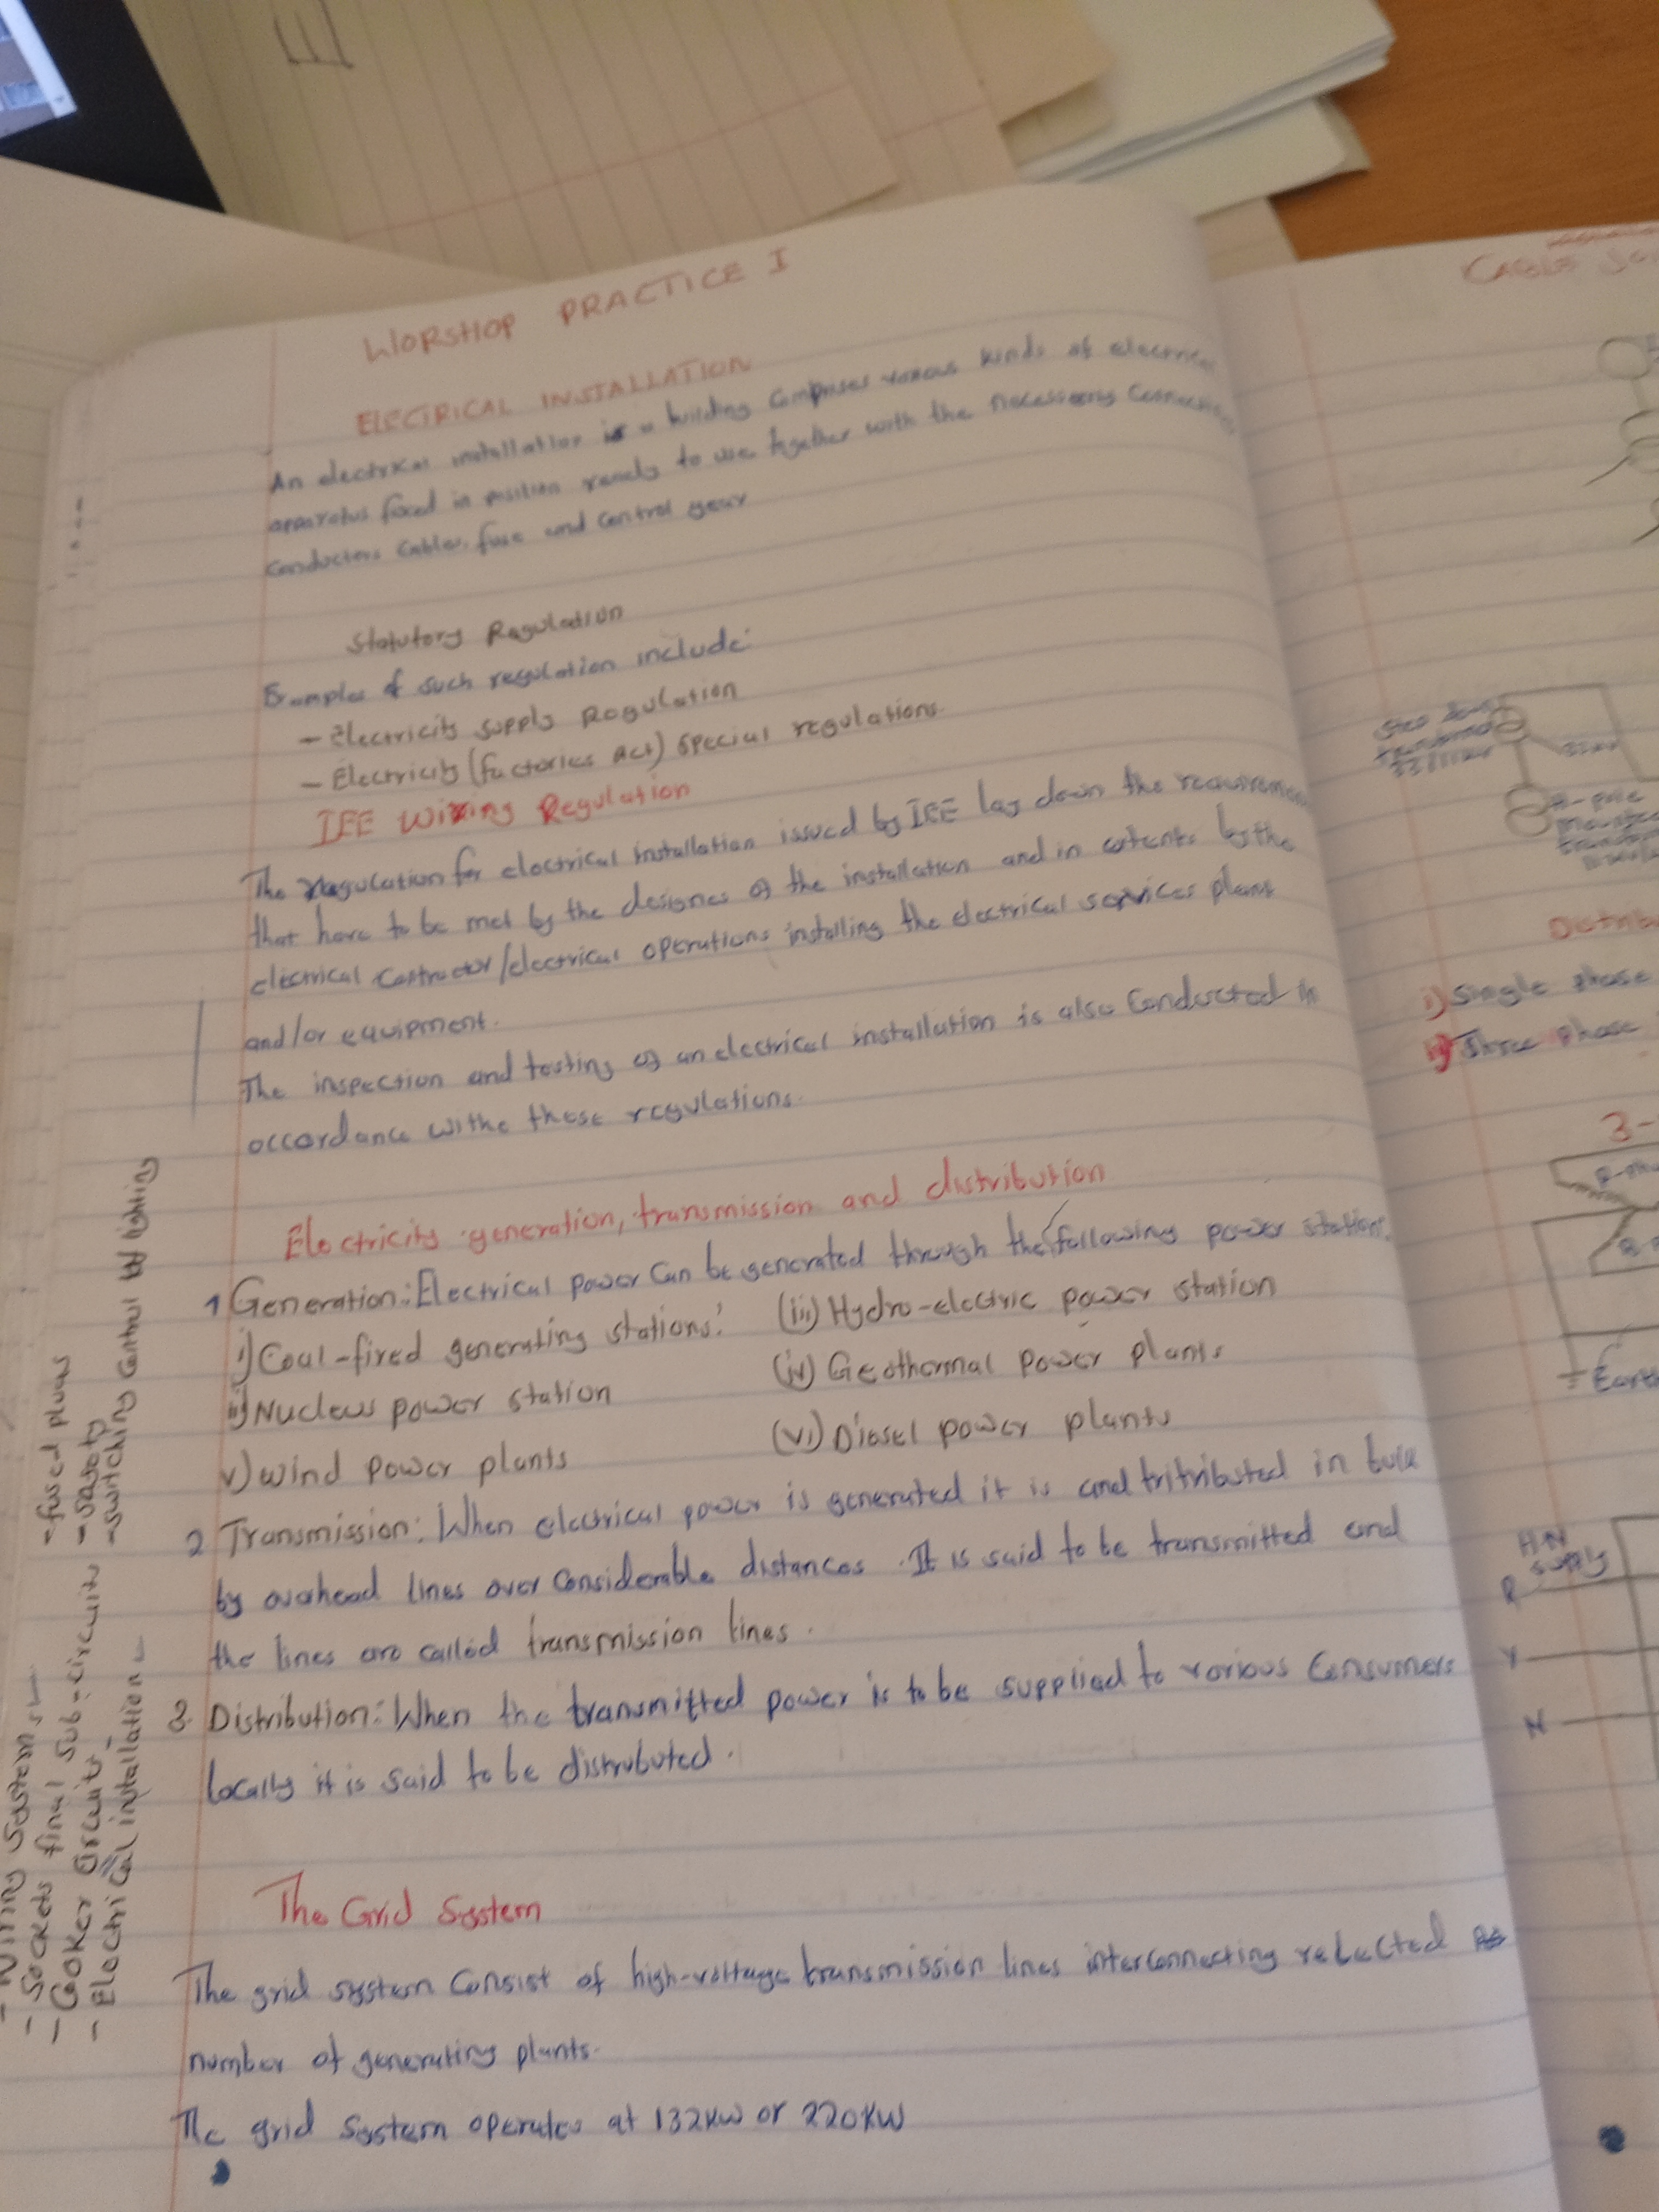 WORSHOP PRACTICE I
ELECTRICAL INSTALLATION
An electrical installation is a building comprises various kinds of electrical
apparatus fixed in position ready to use together with the necessary
conductors cables, fuse and control gear
Statutory Regulation
Examples of such regulation include:
- Electricity supply Regulation
- Electricity (factories Act) special regulations.
IEE Wiring Regulation
The regulation for electrical installation issued by IEE lay down the
that have to be met by the designes of the installation and in extents by the
electrical contractor/electrical operations installing the electrical services plant
and/or equipment.
The inspection and testing of an electrical installation is also conducted in
accordance withe these regulations.
Electricity generation, transmission and distribution
1 Generation: Electrical power can be generated through the following power station.
i) Coal-fired generating stations: (iii) Hydro-electric power station
ii) Nuclear power station (iv) Geothermal power plants
v) wind power plants (vi) Diesel power plants
2 Transmission: When electrical power is generated it is and tritributed in bulk
by overhead lines over considerable distances. It is said to be transmitted and
the lines are called transmission lines.
3. Distribution: When the transmitted power is to be supplied to various consumers
locally it is said to be distrubuted.
The Grid System
The grid system consist of high-voltage transmission lines interconnecting
number of generating plants.
The grid system operates at 132KW or 220KW
- fused plugs
- safety
- switching control lighting
system
- Sockets final sub-circuits
- Cooker circuit
- Electrical installation
CABLE
Step down
33/11KV
i) Single phase
ii) Three phase
3-
Earth
supply
R
Y
N